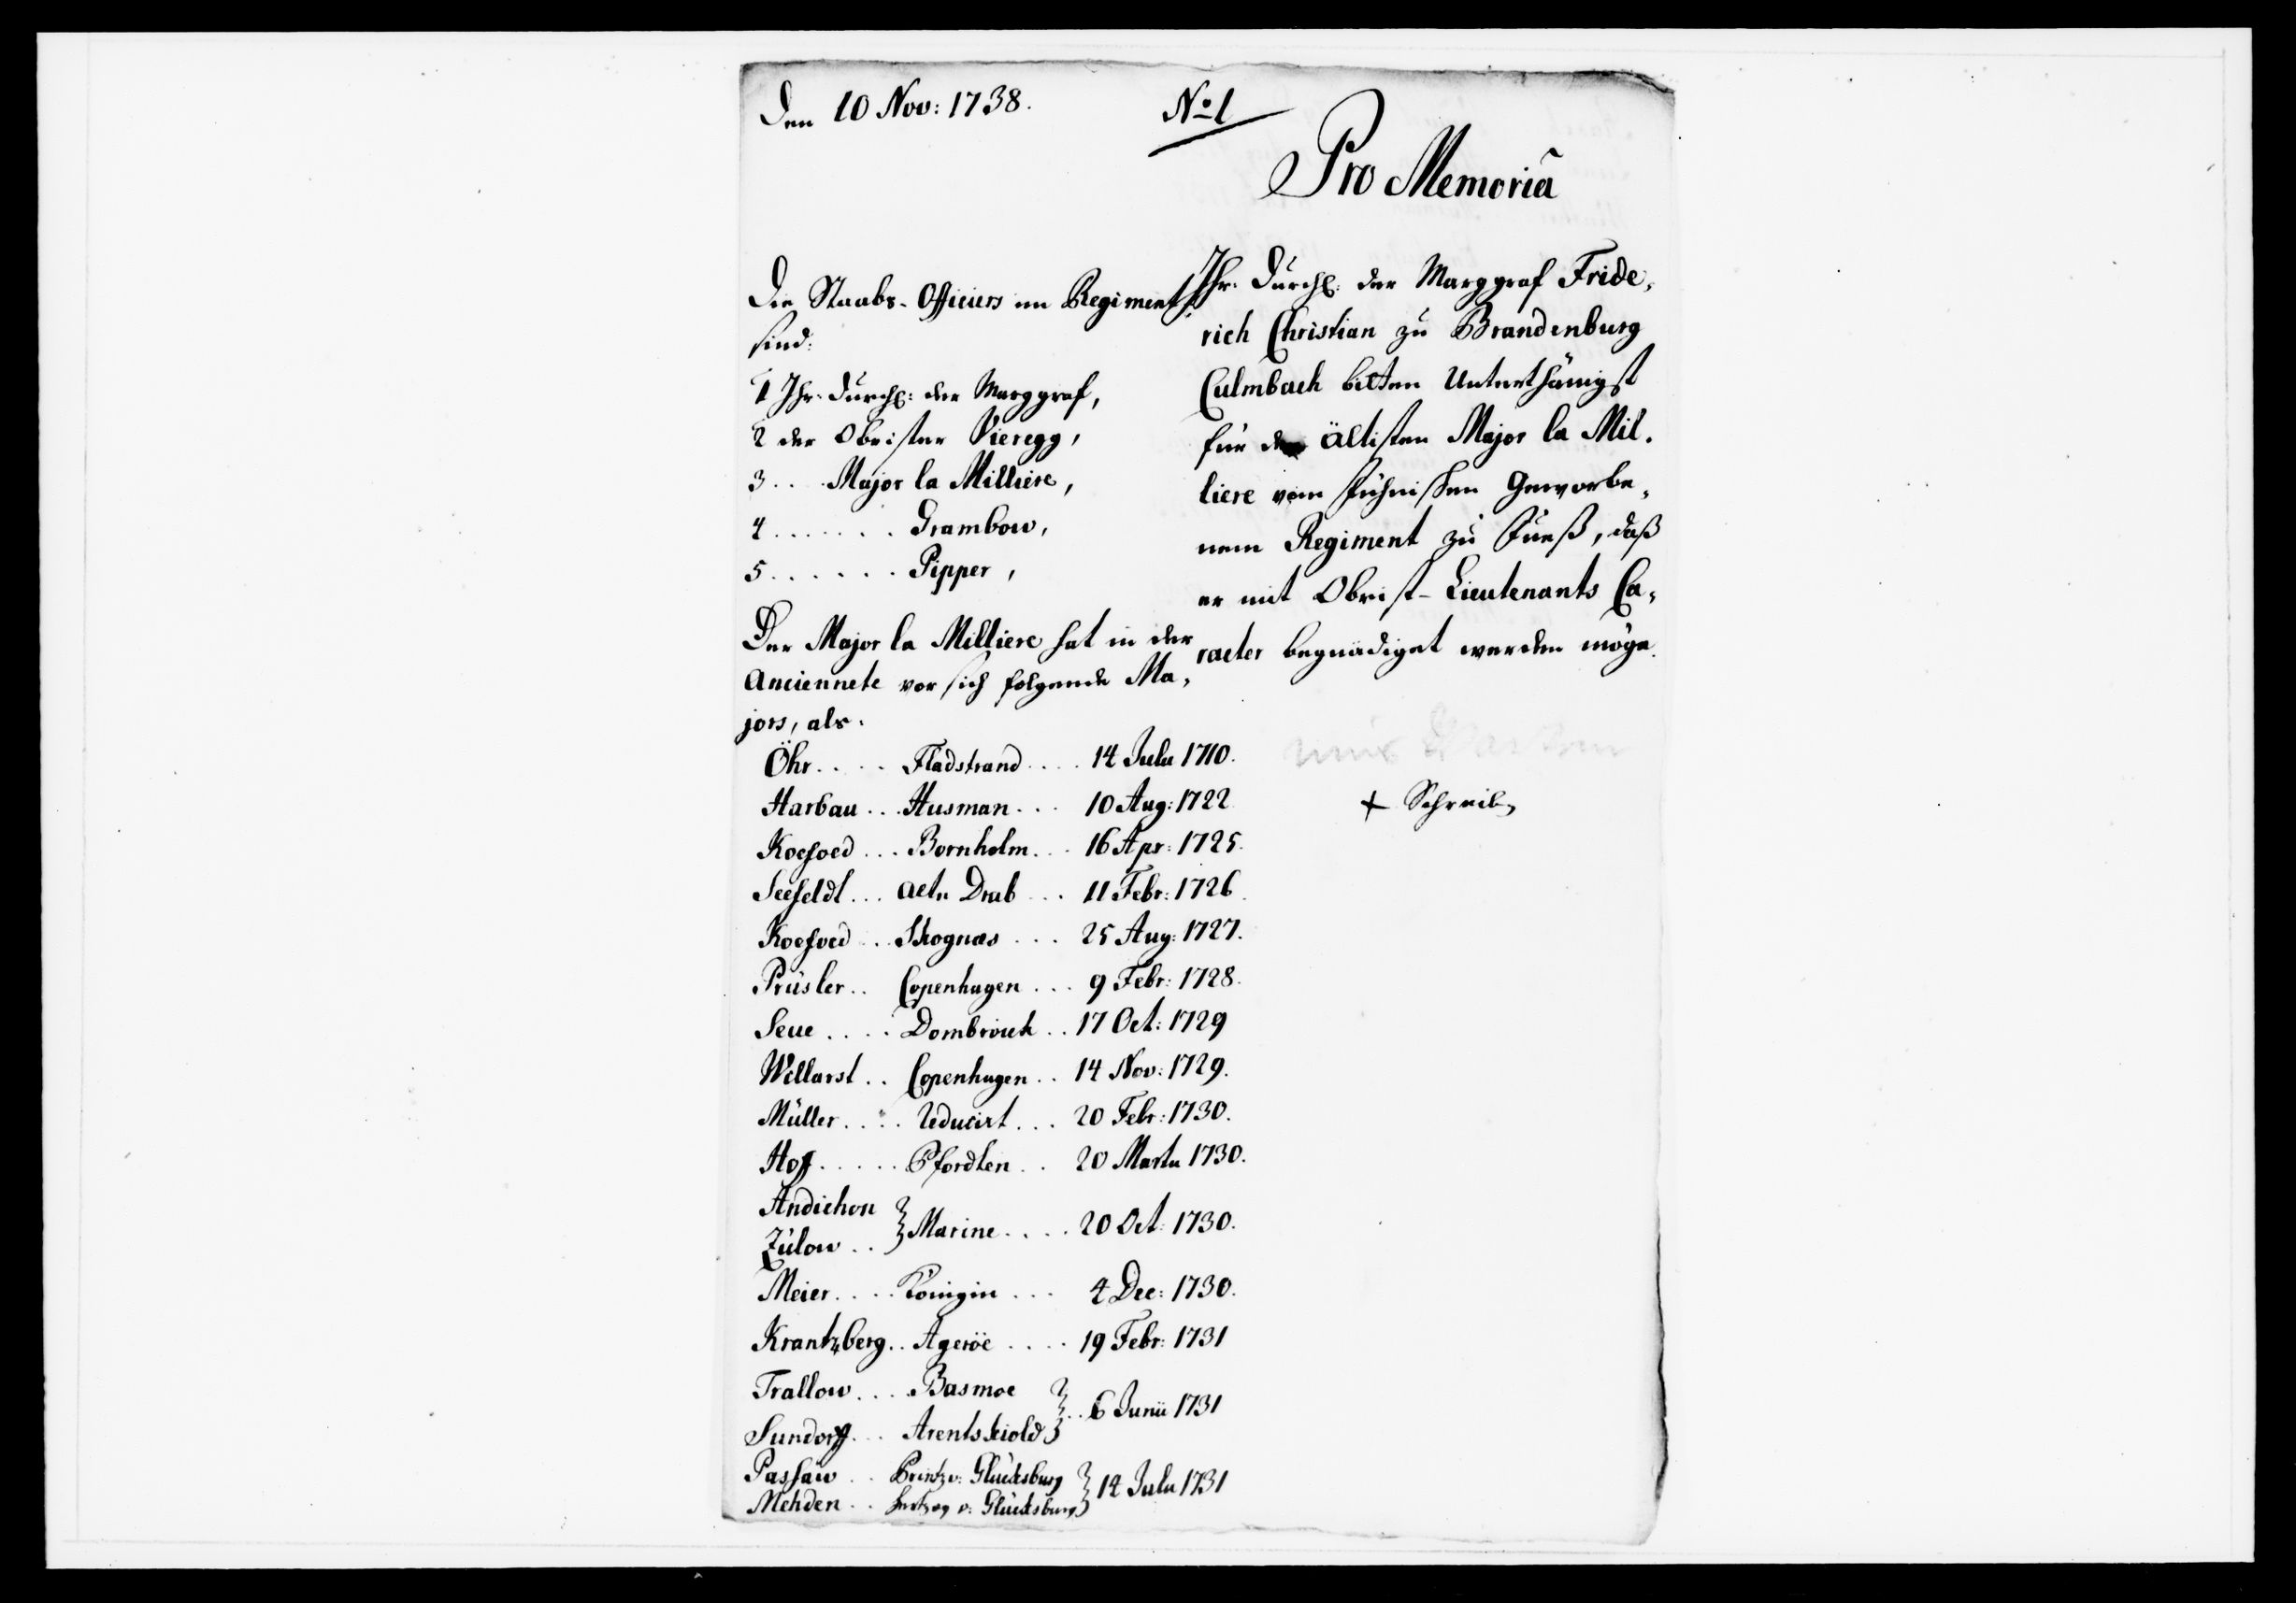 Den 10 Nov: 1738.
No 1
Pro Memoriâ
Ihr. Durchl: der Marggraf Fride,
rich Christian zu Brandenburg
Culmbach bitten Unterthänigst
für den ältisten Major la Mil.
liere vom Fühnischen Geworbe,
nem Regiment zu Fueß, daß
er mit Obrist-Lieutenants Ca,
racter begnädiget werden möge.
+ Schreib
Die Staabs-Officiers im Regiment
sind:
1 Ihr. Durchl: der Marggraf,
2 der Obrister Vieregg,
3 . . . Major la Milliere,
4 . . . . . . Grambow,
5 . . . . . . Pipper,
Der Major la Milliere hat in der
Anciennete vor sich folgende Ma,
jors, als.
Öhr. . . . Fladstrand . . . . 14 Julii 1710.
Harbau . . . Husman . . . 10 Aug: 1722
Koefoed . . . Bornholm . . . 16 Apr: 1725.
Seefeldt . . . Drab . . . 11 Febr: 1726.
Koefoed . . Skognæs . . . 25 Aug: 1727.
Prüsler . . Copenhagen . . . 9 Febr: 1728.
Seue . . . . Dombrouck . . 17 Oct: 1729
Willarst . . Copenhagen . . 14 Nov: 1729.
Müller . . . . Reducirt . . . 20 Febr: 1730.
Hoff . . . . . Pfordten . . 20 Martii 1730.
Andichon
Zülow . . } Marine . . . . 20 Oct: 1730.
Meier . . . . Königin . . . 4 Dec: 1730.
Krantzberg . . Ageröe . . . . 19 Febr: 1731
Trallow . . . Basmoe
Sundorff . . . Arentskiold } . . 6 Junii 1731
Passau . . Printz v: Glücksburg
Mehden . . Hertzog v: Glücksburg } 14 Julii 1731